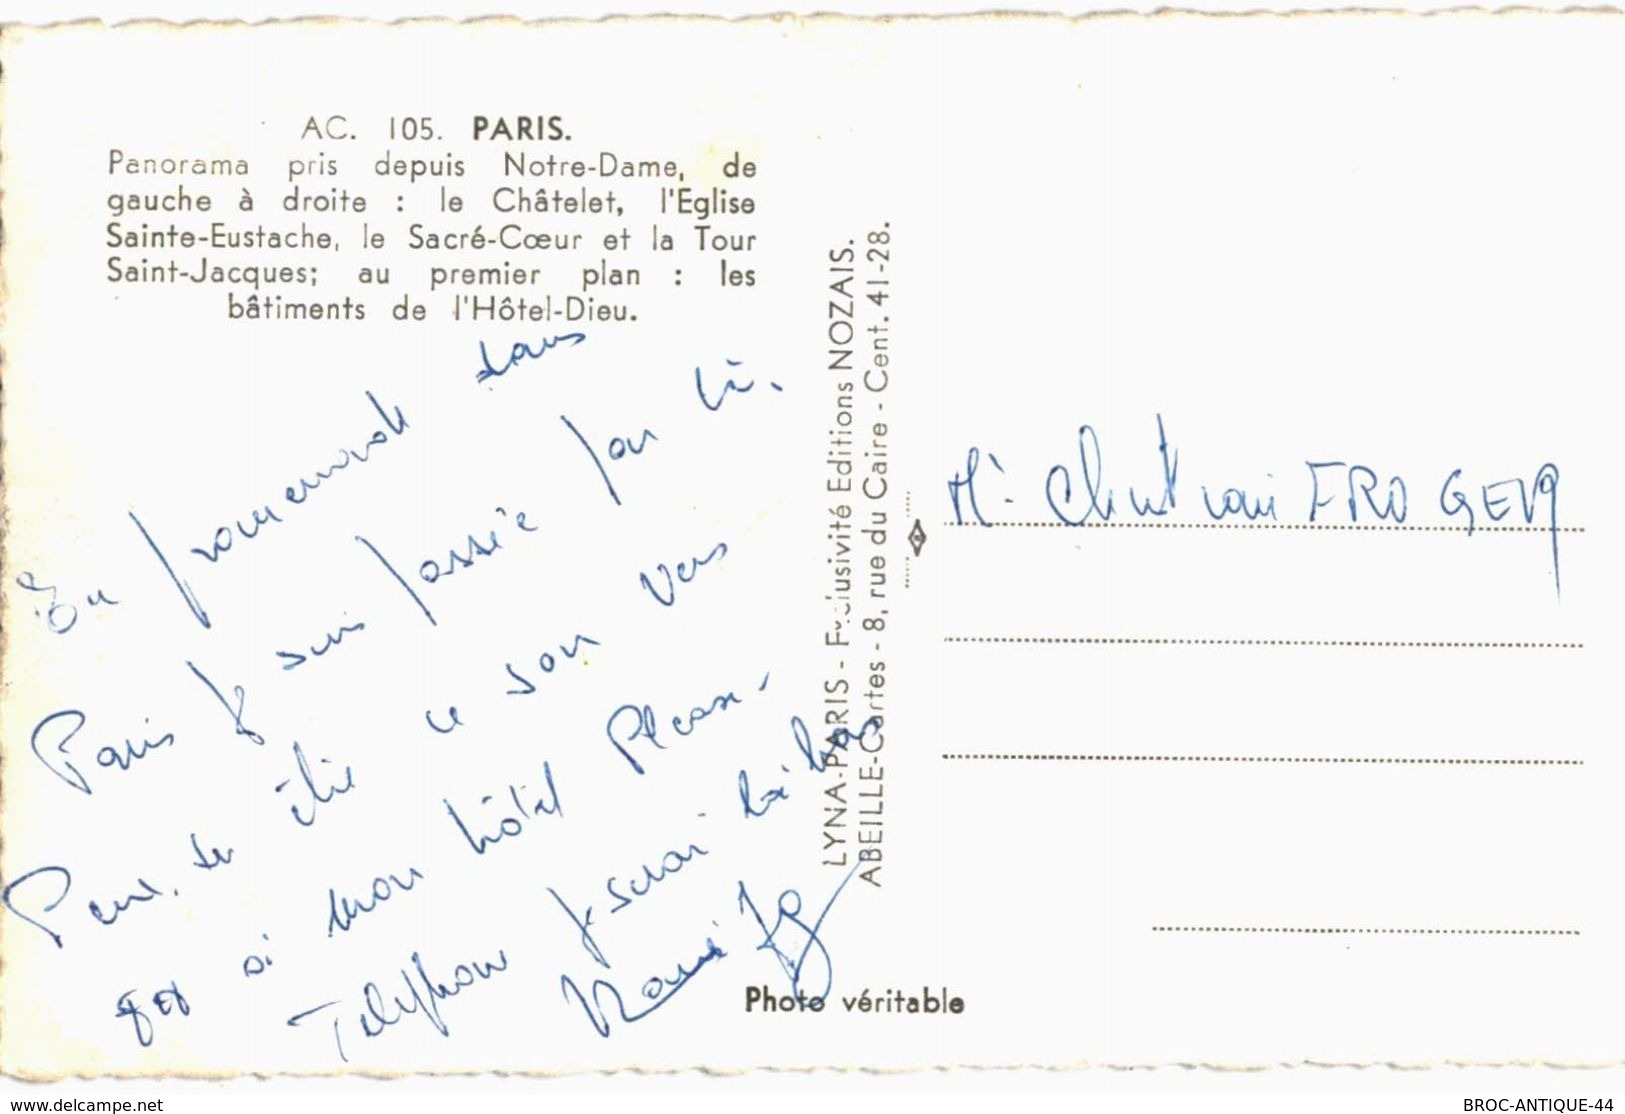 AC. 105. PARIS.
Panorama pris depuis Notre-Dame, de
gauche à droite : le Châtelet, l'Eglise
Sainte-Eustache, le Sacré-Cœur et la Tour
Saint-Jacques; au premier plan : les
bâtiments de l'Hôtel-Dieu.
En promenade dans
Paris je suis passée par là.
Peux-tu être ce soir vers
à mon hôtel Please-
Telephon je serai là bas
LYNA-PARIS - Exclusivité Editions NOZAIS.
ABEILLE-Cartes - 8, rue du Caire - Cent. 41-28.
Mr. Christian FROGER
Photo véritable
www.delcampe.net
BROC-ANTIQUE-44